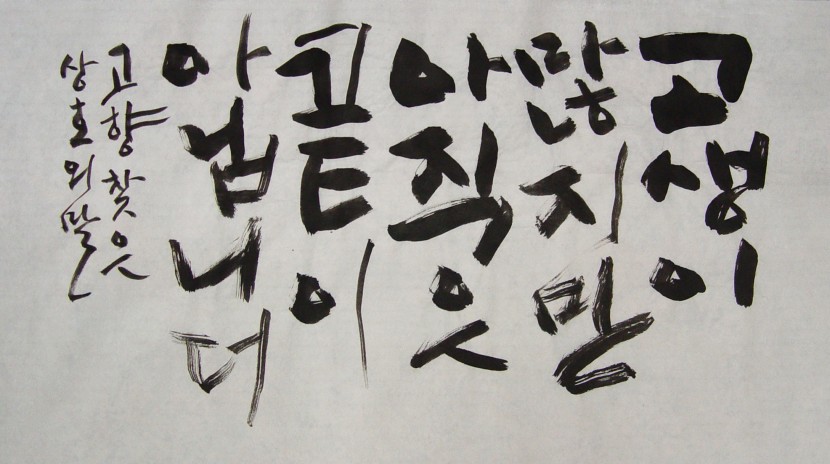 고생이
많지만
아직은
끝이
아닙니더
고향찾은
상호의말